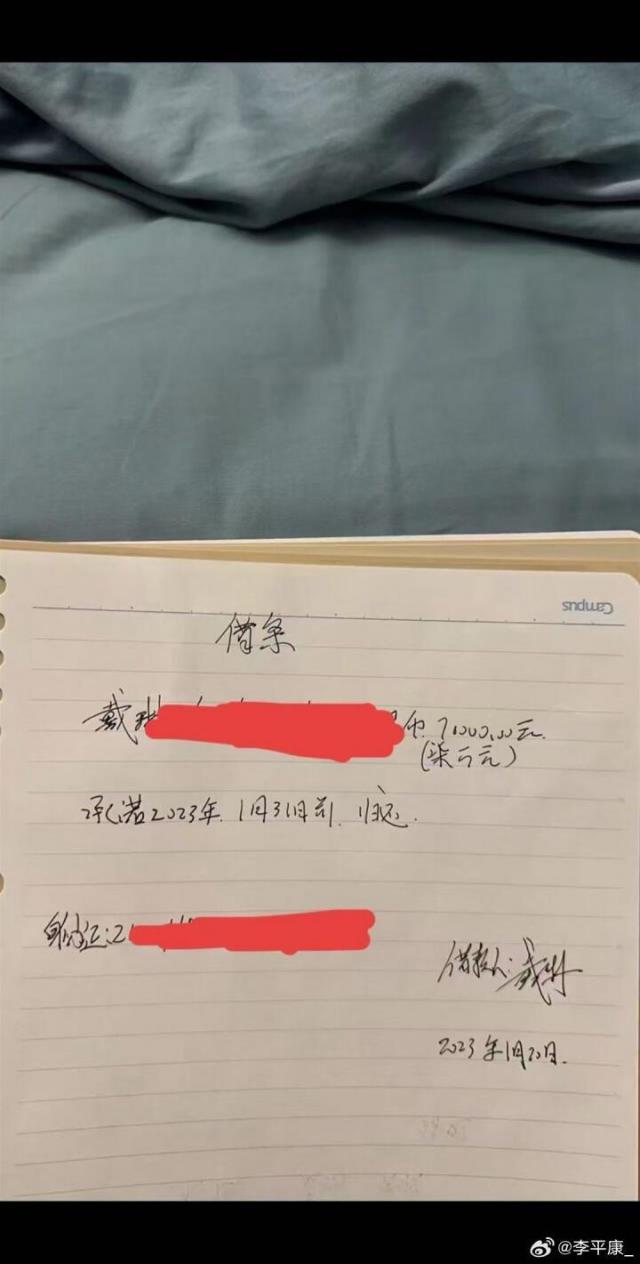 Campus
借条
戴 币 7000.00元
(柒千元)
承诺2023年1月31日前, 归还.
身份证:2
借款人:戴琳
2023年1月20日.
@李平康_